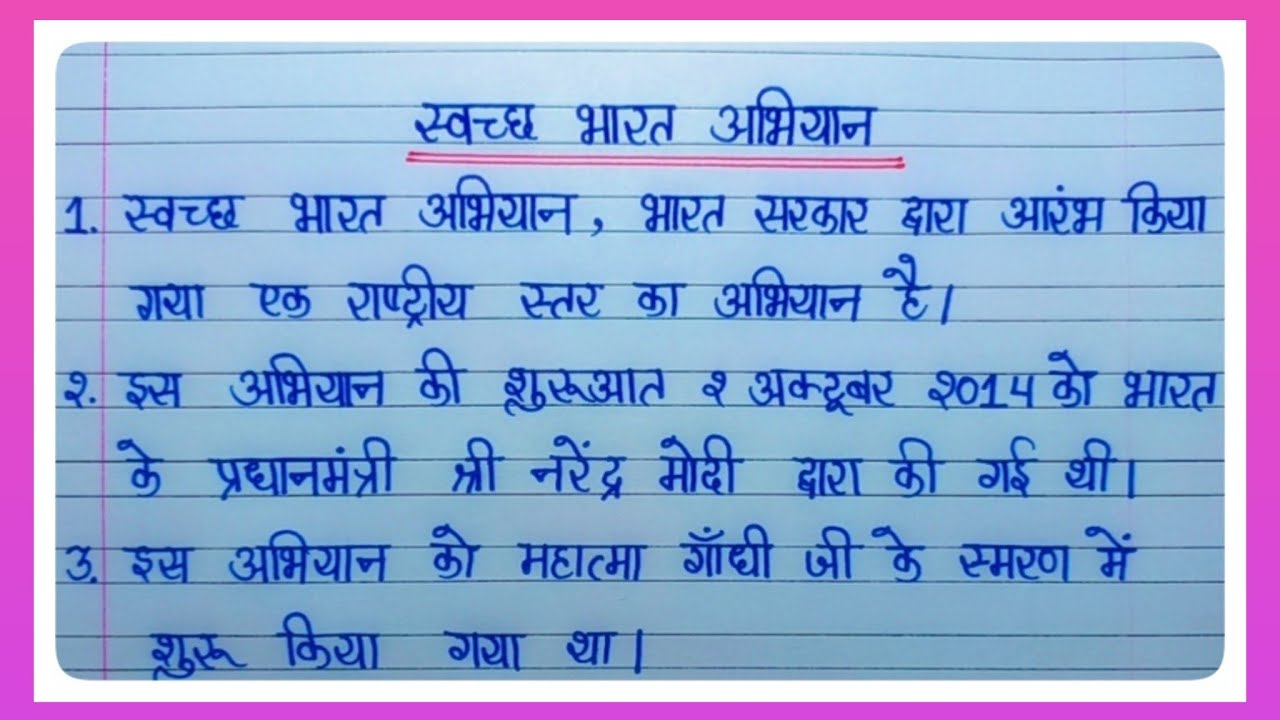 स्वच्छ भारत अभियान
1. स्वच्छ भारत अभियान, भारत सरकार द्वारा आरंभ किया
गया एक राष्ट्रीय स्तर का अभियान है।
२. इस अभियान की शुरूआत २ अक्टूबर २014 को भारत
के प्रधानमंत्री श्री नरेंद्र मोदी द्वारा की गई थी।
3. इस अभियान को महात्मा गाँधी जी के स्मरण में
शुरू किया गया था।